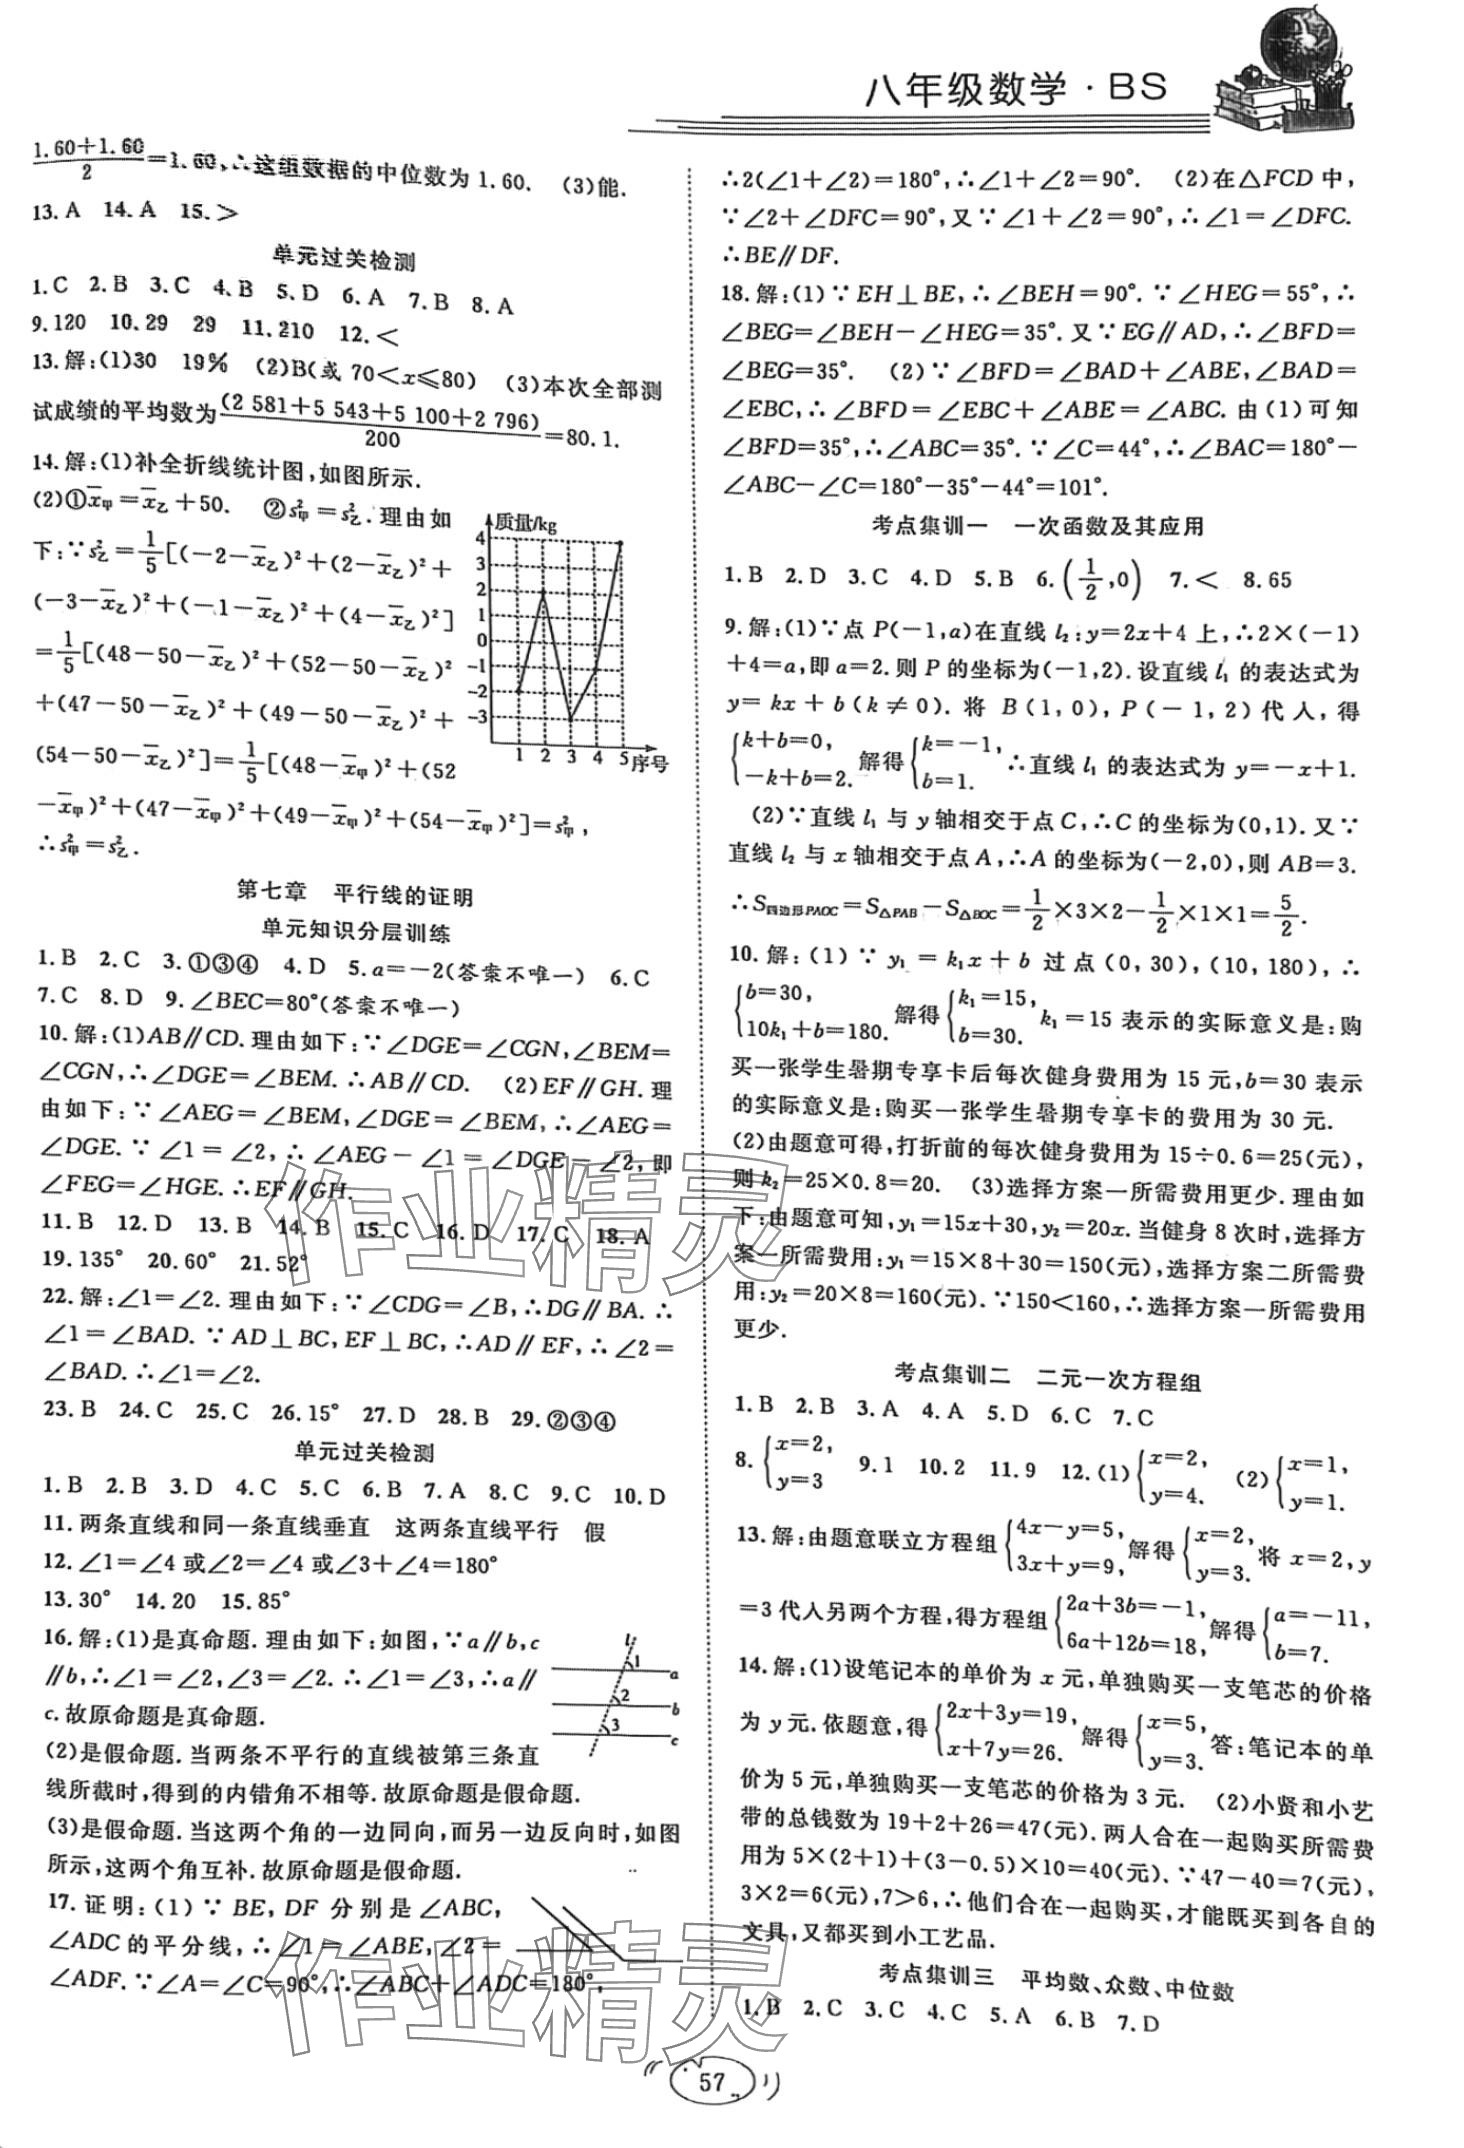 八年级数学·BS
(1.60+1.60)/2=1.60,∴这组数据的中位数为1.60. (3)能.
13.A 14.A 15.>
单元过关检测
1.C 2.B 3.C 4.B 5.D 6.A 7.B 8.A
9.120 10.29 29 11.210 12.<
13.解:(1)30 19% (2)B(或 70<x≤80) (3)本次全部测
试成绩的平均数为(2 581+5 543+5 100+2 796)/200=80.1.
14.解:(1)补全折线统计图,如图所示.
(2)①x̄甲=x̄乙+50. ②s²甲=s²乙.理由如
下:∵s²乙=1/5[(-2-x̄乙)²+(2-x̄乙)²+
(-3-x̄乙)²+(-1-x̄乙)²+(4-x̄乙)²]
=1/5[(48-50-x̄乙)²+(52-50-x̄乙)²
+(47-50-x̄乙)²+(49-50-x̄乙)²+
(54-50-x̄乙)²]=1/5[(48-x̄甲)²+(52
-x̄甲)²+(47-x̄甲)²+(49-x̄甲)²+(54-x̄甲)²]=s²甲,
∴s²甲=s²乙.
质量/kg
4
3
2
1
0
-1
-2
-3
1 2 3 4 5序号
第七章 平行线的证明
单元知识分层训练
1.B 2.C 3.①③④ 4.D 5.a=-2(答案不唯一) 6.C
7.C 8.D 9.∠BEC=80°(答案不唯一)
10.解:(1)AB∥CD.理由如下:∵∠DGE=∠CGN,∠BEM=
∠CGN,∴∠DGE=∠BEM.∴AB∥CD. (2)EF∥GH.理
由如下:∵∠AEG=∠BEM,∠DGE=∠BEM,∴∠AEG=
∠DGE.∵∠1=∠2,∴∠AEG-∠1=∠DGE-∠2,即
∠FEG=∠HGE.∴EF∥GH.
11.B 12.D 13.B 14.B 15.C 16.D 17.C 18.A
19.135° 20.60° 21.52°
22.解:∠1=∠2.理由如下:∵∠CDG=∠B,∴DG∥BA.∴
∠1=∠BAD.∵AD⊥BC,EF⊥BC,∴AD∥EF,∴∠2=
∠BAD.∴∠1=∠2.
23.B 24.C 25.C 26.15° 27.D 28.B 29.②③④
单元过关检测
1.B 2.B 3.D 4.C 5.C 6.B 7.A 8.C 9.C 10.D
11.两条直线和同一条直线垂直 这两条直线平行 假
12.∠1=∠4或∠2=∠4或∠3+∠4=180°
13.30° 14.20 15.85°
16.解:(1)是真命题.理由如下:如图,∵a∥b,c
∥b,∴∠1=∠2,∠3=∠2.∴∠1=∠3,∴a∥
c.故原命题是真命题.
l
1
a
2
b
3
c
(2)是假命题.当两条不平行的直线被第三条直
线所截时,得到的内错角不相等.故原命题是假命题.
(3)是假命题.当这两个角的一边同向,而另一边反向时,如图
所示,这两个角互补.故原命题是假命题.
17.证明:(1)∵BE,DF分别是∠ABC,
∠ADC的平分线,∴∠1=∠ABE,∠2=
∠ADF.∵∠A=∠C=90°,∴∠ABC+∠ADC=180°,
∴2(∠1+∠2)=180°,∴∠1+∠2=90°. (2)在△FCD中,
∵∠2+∠DFC=90°,又∵∠1+∠2=90°,∴∠1=∠DFC.
∴BE∥DF.
18.解:(1)∵EH⊥BE,∴∠BEH=90°.∵∠HEG=55°,∴
∠BEG=∠BEH-∠HEG=35°.又∵EG∥AD,∴∠BFD=
∠BEG=35°. (2)∵∠BFD=∠BAD+∠ABE,∠BAD=
∠EBC,∴∠BFD=∠EBC+∠ABE=∠ABC.由(1)可知
∠BFD=35°,∴∠ABC=35°.∵∠C=44°,∴∠BAC=180°-
∠ABC-∠C=180°-35°-44°=101°.
考点集训一 一次函数及其应用
1.B 2.D 3.C 4.D 5.B 6.(1/2,0) 7.< 8.65
9.解:(1)∵点P(-1,a)在直线l₂:y=2x+4上,∴2×(-1)
+4=a,即a=2.则P的坐标为(-1,2).设直线l₁的表达式为
y=kx+b(k≠0).将B(1,0),P(-1,2)代人,得
{k+b=0, -k+b=2. 解得{k=-1, b=1. ∴直线l₁的表达式为y=-x+1.
(2)∵直线l₁与y轴相交于点C,∴C的坐标为(0,1).又∵
直线l₂与x轴相交于点A,∴A的坐标为(-2,0),则AB=3.
∴S四边形PAOC=S△PAB-S△BOC=1/2×3×2-1/2×1×1=5/2.
10.解:(1)∵y₁=k₁x+b过点(0,30),(10,180),∴
{b=30, 10k₁+b=180. 解得{k₁=15, b=30. k₁=15表示的实际意义是:购
买一张学生暑期专享卡后每次健身费用为15元,b=30表示
的实际意义是:购买一张学生暑期专享卡的费用为30元.
(2)由题意可得,打折前的每次健身费用为15÷0.6=25(元),
则k₂=25×0.8=20. (3)选择方案一所需费用更少.理由如
下:由题意可知,y₁=15x+30,y₂=20x.当健身8次时,选择方
案一所需费用:y₁=15×8+30=150(元),选择方案二所需费
用:y₂=20×8=160(元).∵150<160,∴选择方案一所需费用
更少.
考点集训二 二元一次方程组
1.B 2.B 3.A 4.A 5.D 6.C 7.C
8.{x=2, y=3 9.1 10.2 11.9 12.(1){x=2, y=4. (2){x=1, y=1.
13.解:由题意联立方程组{4x-y=5, 3x+y=9, 解得{x=2, y=3. 将x=2,y
=3代人另两个方程,得方程组{2a+3b=-1, 6a+12b=18, 解得{a=-11, b=7.
14.解:(1)设笔记本的单价为x元,单独购买一支笔芯的价格
为y元.依题意,得{2x+3y=19, x+7y=26. 解得{x=5, y=3. 答:笔记本的单
价为5元,单独购买一支笔芯的价格为3元. (2)小贤和小艺
带的总钱数为19+2+26=47(元).两人合在一起购买所需费
用为5×(2+1)+(3-0.5)×10=40(元).∵47-40=7(元),
3×2=6(元),7>6,∴他们合在一起购买,才能既买到各自的
文具,又都买到小工艺品.
考点集训三 平均数、众数、中位数
1.B 2.C 3.C 4.C 5.A 6.B 7.D
作业精灵
作业精灵
57